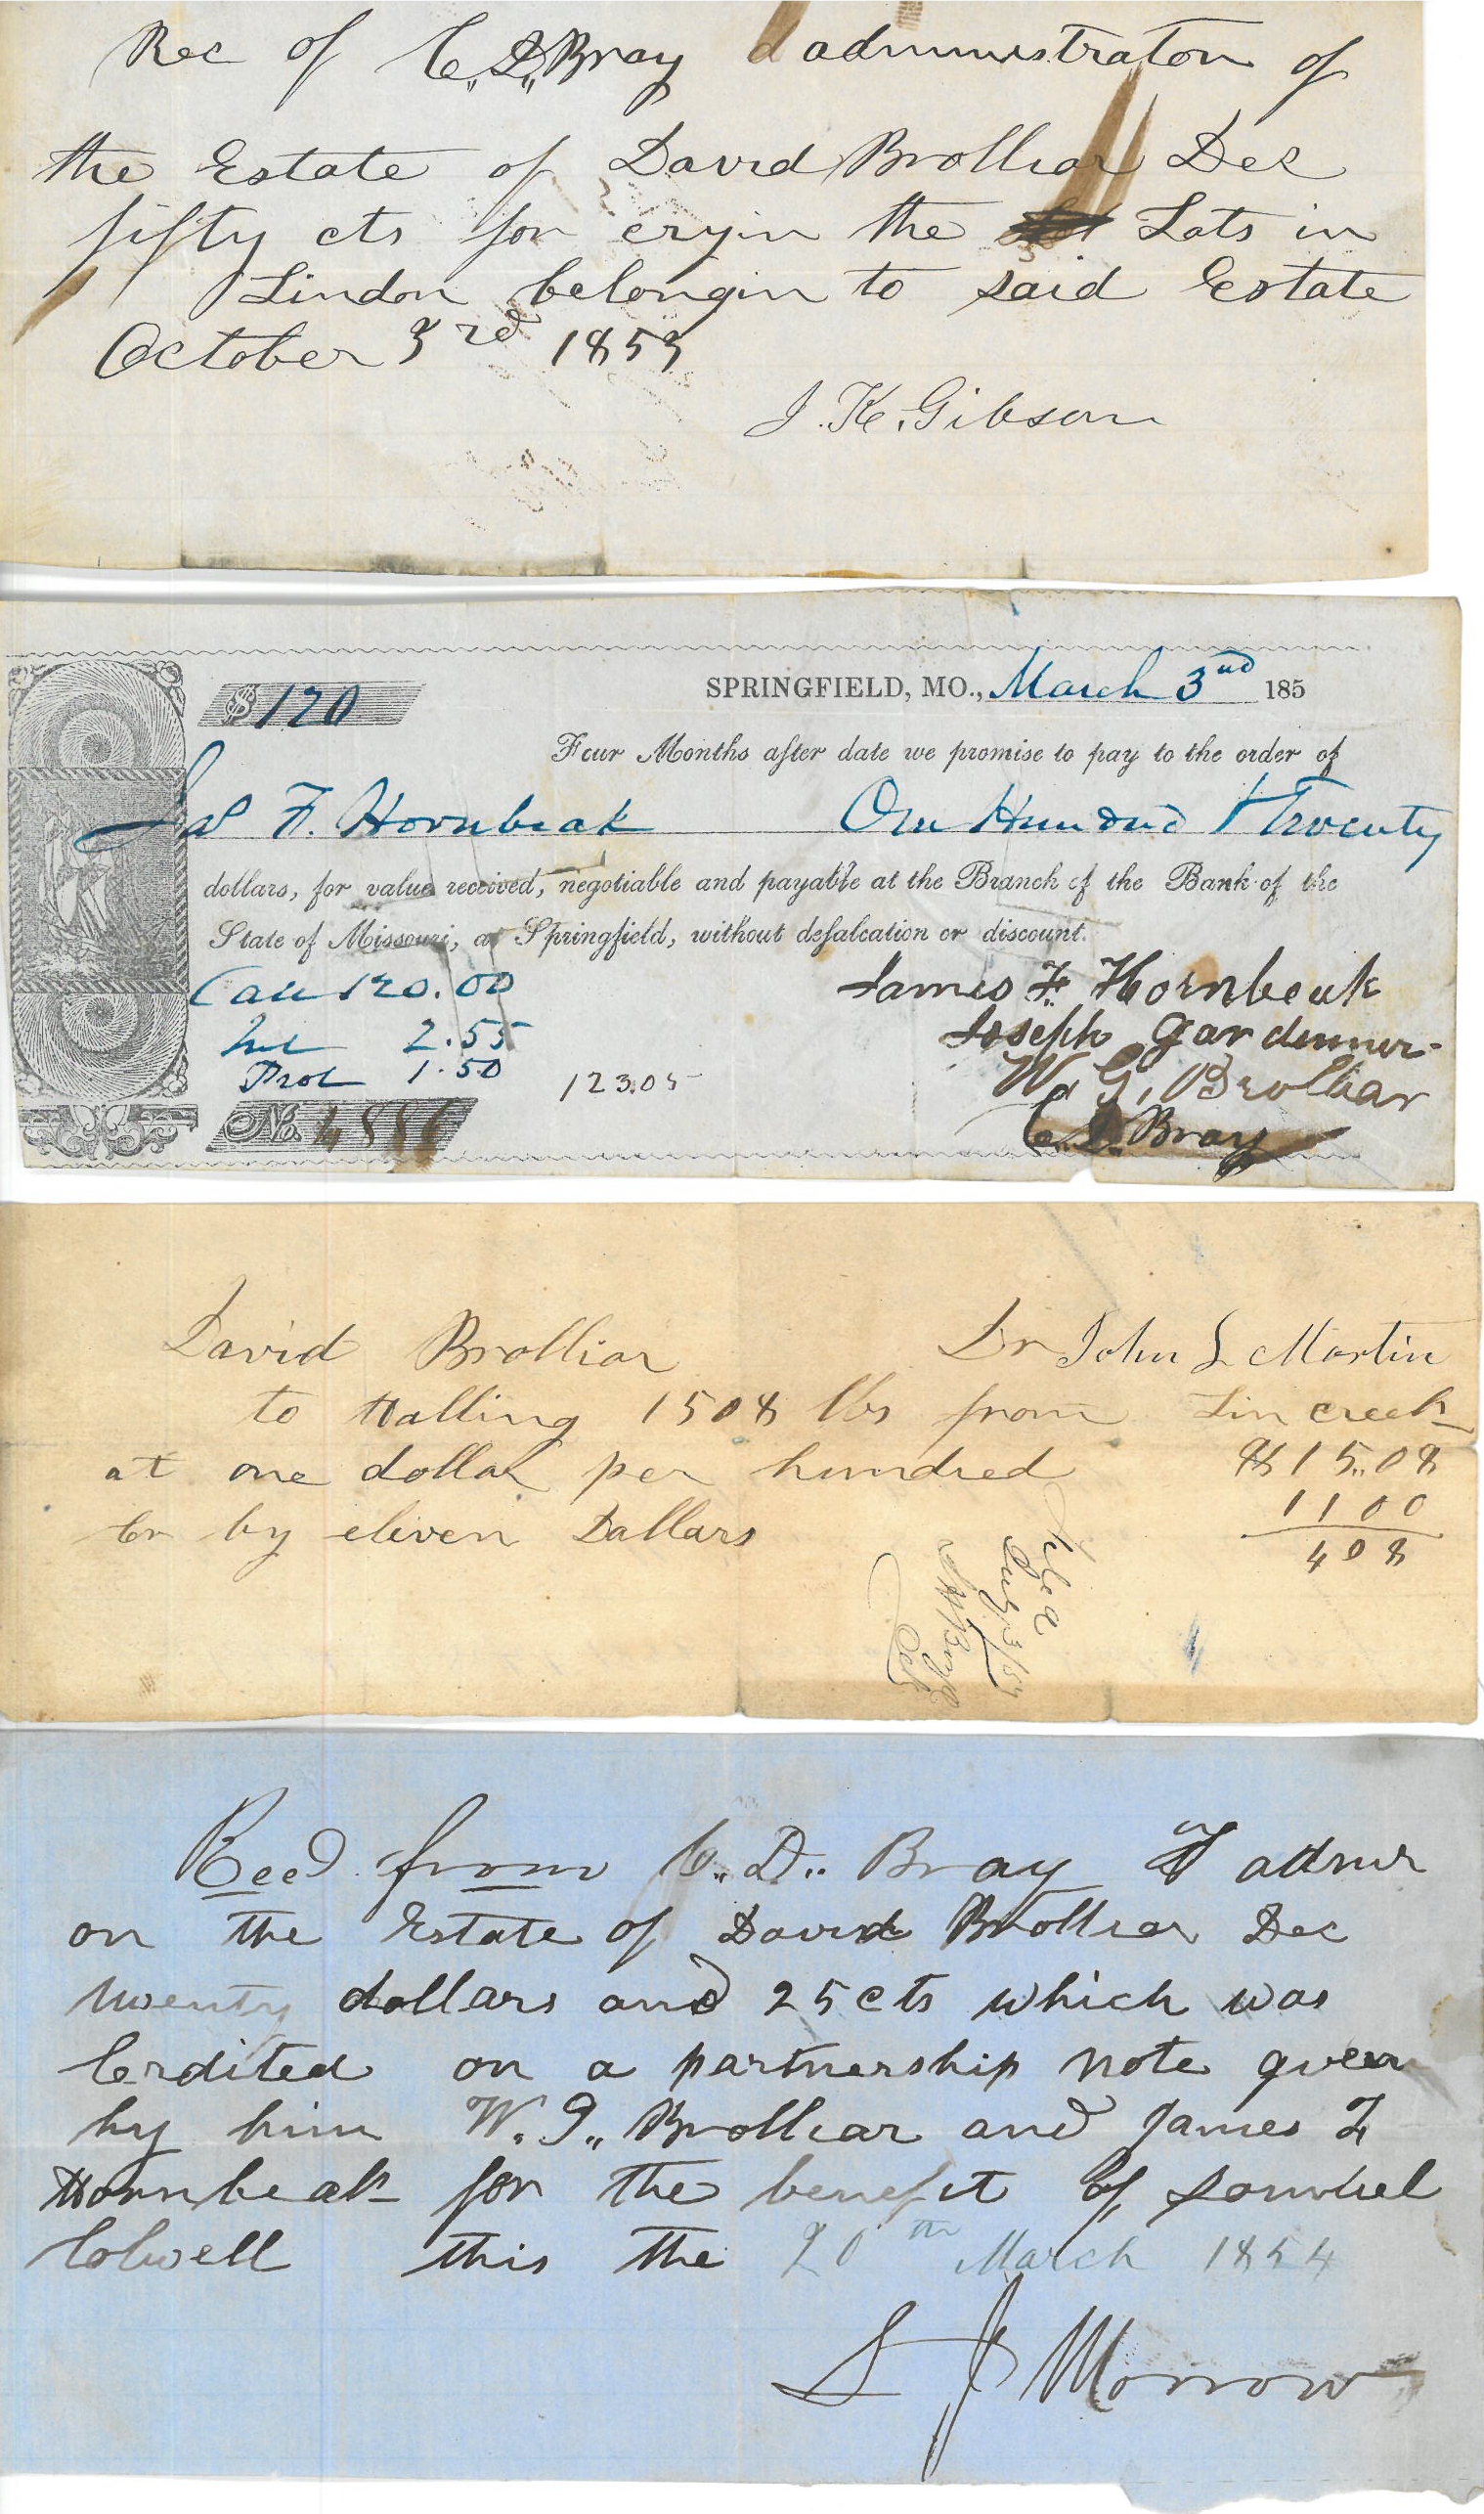 Rec of C. D. Bray administrator of
the Estate of David Brolliar Dec
fifty cts for cryin the Lots in
Lindon belongin to said Estate
October 3rd 1853
J. K. Gibson
$ 120
SPRINGFIELD, MO., March 3nd 185
Four Months after date we promise to pay to the order of
Jas F. Hornbeak One Hundred & Twenty
dollars, for value received, negotiable and payable at the Branch of the Bank of the
State of Missouri, at Springfield, without defalcation or discount.
120.00
Int 2.55
Prot 1.50 123.05
No. 4886
James F. Hornbeak
Joseph Gardenner
W. G. Brolliar
C. D. Bray
David Brolliar Dr John L Martin
to Halling 1508 lbs from Lin creek
at one dollar per hundred $15.08
Cr by eleven Dallars 1100
408
Filed
July 3/54
Clk
Recd from C. D. Bray admr
on the Estate of David Brolliar Dec
twenty dollars and 25 cts which was
Cerdited on a partnership note given
by him W. G. Brolliar and James F
Hornbeak for the benefit of Samuel
Colwell this the 20th March 1854
S J Morrow